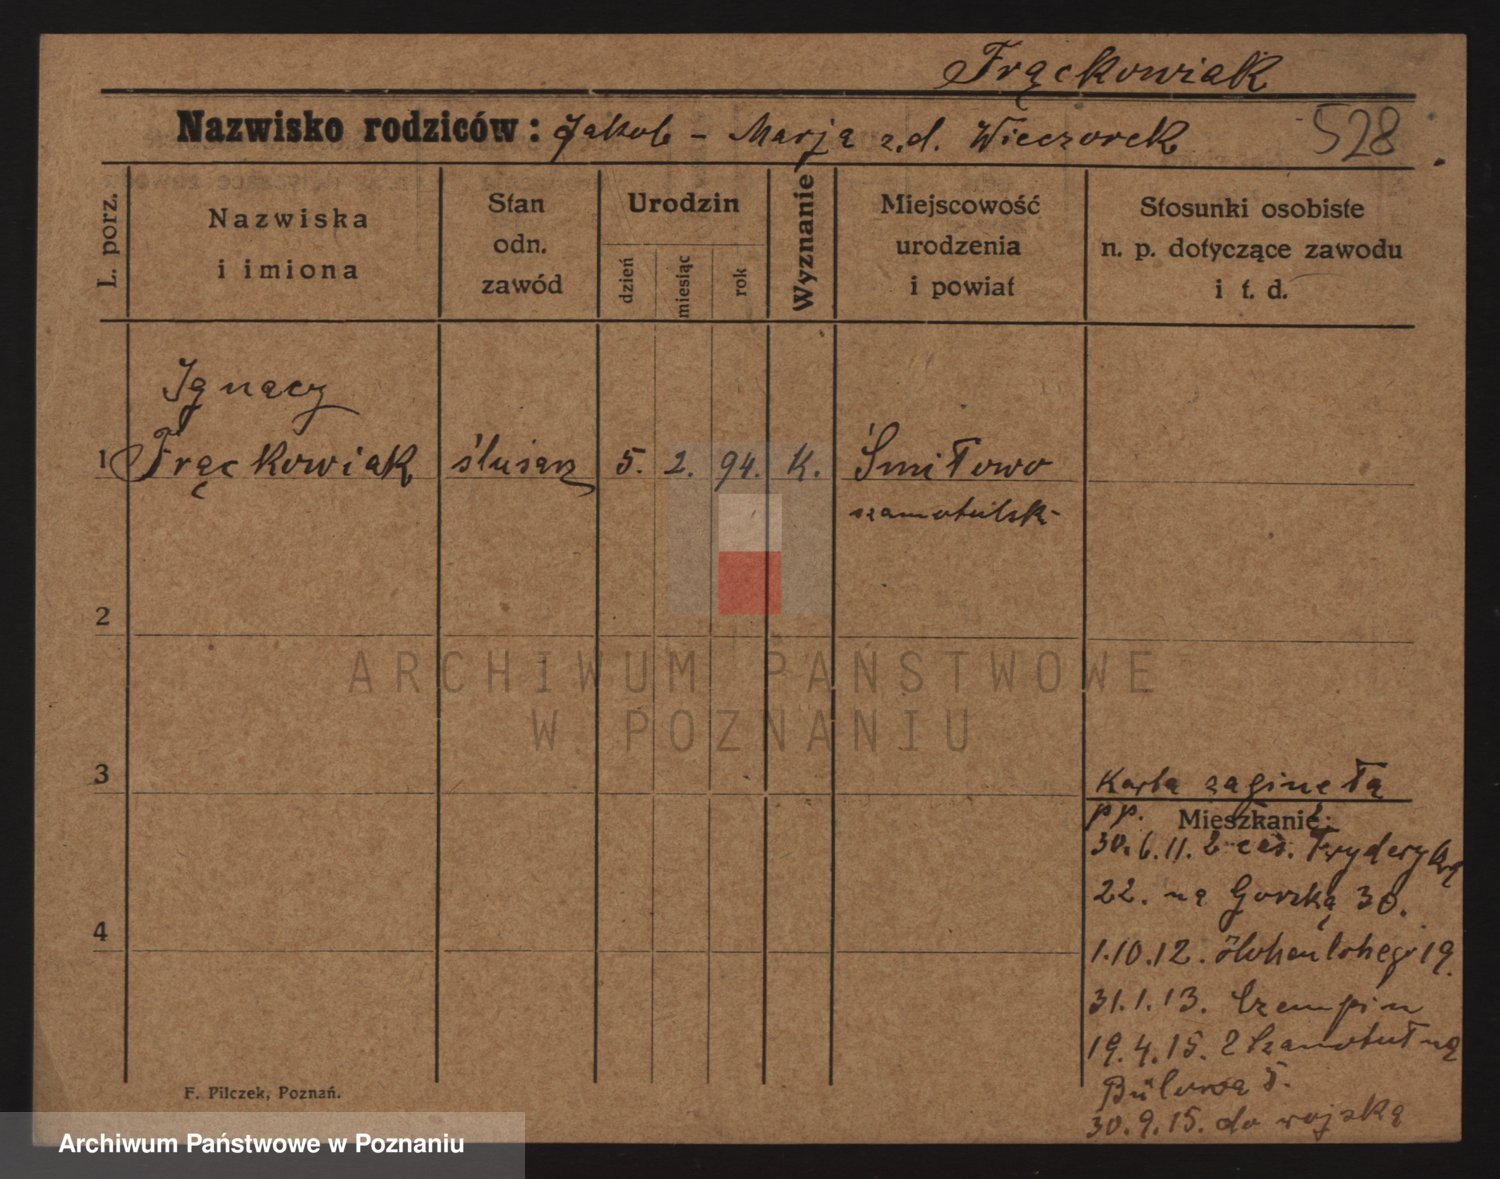 Frąckowiak
Nazwisko rodziców: Jakob - Marja z.d. Wieczorek
528
L. porz.
Nazwiska
i imiona
Stan
odn.
zawód
Urodzin
dzień
miesiąc
rok
Wyznanie
Miejscowość
urodzenia
i powiat
Stosunki osobiste
n. p. dotyczące zawodu
i t. d.
Ignacy
1 Frąckowiak ślusarz 5. 2. 94. K. Śmiłowo
szamotulsk-
2
ARCHIWUM PAŃSTWOWE
W POZNANIU
3
Karta zaginęła
pp. Mieszkanie:
30.6.11. z Fryderyka
22. na Gorzka 30.
4
1.10.12. Hohenlohego 19.
31.1.13. Czempin
19.4.15. z Szamotuł na
Bülowa 5.
30.9.15. do wojska
F. Pilczek, Poznań.
Archiwum Państwowe w Poznaniu